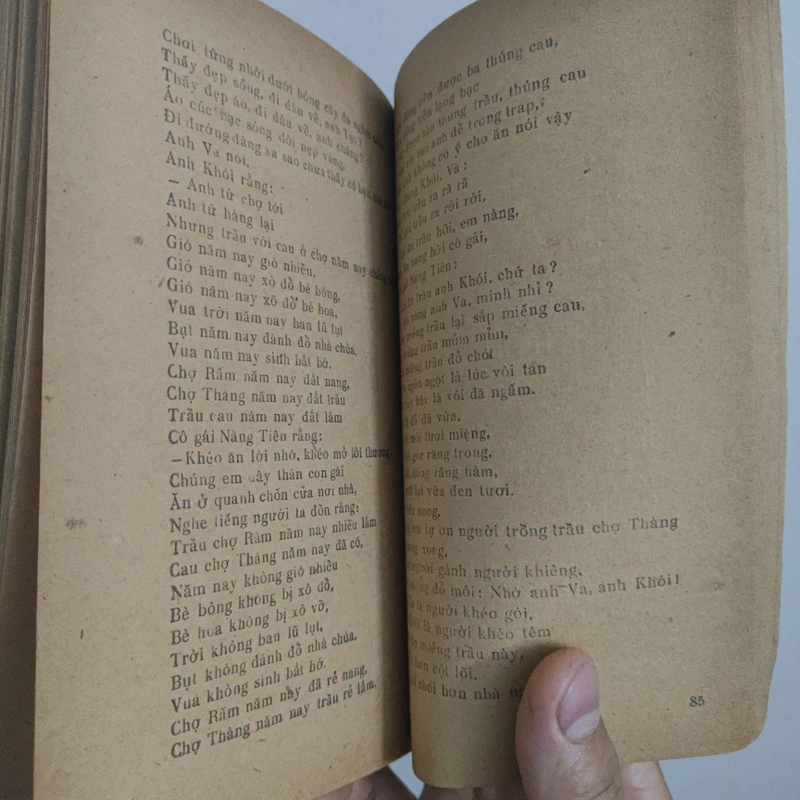 Chơi từng nhởi dưới bóng cây
Thấy đẹp sống, đi đâu về, anh
Thấy đẹp áo, đi đâu về, anh chăng?
Áo cúc bạc sóng đôi nẹp vàng,
Đi đường đàng xa sao chưa thấy có
Anh Va nói.
Anh Khói rằng:
— Anh từ chợ tới
Anh từ hàng lại
Nhưng trầu với cau ở chợ năm nay
Gió năm nay gió nhiều,
Gió năm nay xô đổ bẻ bông,
Gió năm nay xô đổ bẻ hoa,
Vua trời năm nay ban lũ lụt
Bụt năm nay đánh đổ nhà chùa,
Vua năm nay sinh bất bớ.
Chợ Rằm năm nay đắt nang,
Chợ Thàng năm nay đắt trầu
Trầu cau năm nay đắt lắm
Cô gái Nàng Tiên rằng:
—Khéo ăn lời nhớ, khéo mở lời thương,
Chúng em đây thân con gái
Ăn ở quanh chốn cửa nơi nhà,
Nghe tiếng người ta đồn rằng:
Trầu chợ Rằm năm nay nhiều lắm
Cau chợ Thàng năm nay đã có,
Năm nay không gió nhiều
Bẻ bông không bị xô đổ,
Bẻ hoa không bị xô vỡ,
Trời không ban lũ lụt,
Bụt không đánh đổ nhà chùa,
Vua không sinh bất bớ.
Chợ Rằm năm nay đã rẻ nang,
Chợ Thàng năm nay trầu rẻ lắm.
tiền được ba thúng cau,
tiền lạng bạc
được sáu thúng trầu, thúng cau
anh để trong tráp,
anh không có ý cho ăn nói vậy
chàng Khói, Va:
trầu ra rả rã
trầu ra rời rời,
ăn trầu hỡi, em nàng,
ăn nang hỡi cô gái,
gái Nàng Tiên:
trầu anh Khói, chứ ta?
nang anh Va, mình nhỉ?
miếng trầu lại sắp miếng cau,
miếng trầu mủm mỉm,
miếng trầu đỏ chót
ngòn ngọt là lúc vôi tan
cay là vôi đã ngấm.
đỏ đã vừa,
môi tươi miệng,
răng trong,
răng hàm,
vừa đen tươi.
xong,
em tạ ơn người trồng trầu chợ Thàng
xong,
người gánh người khiêng,
đỏ môi: Nhờ anh Va, anh Khói!
là người khéo gói,
là người khéo têm
miếng trầu này,
hơn cột lõi,
chói hơn nhà
85